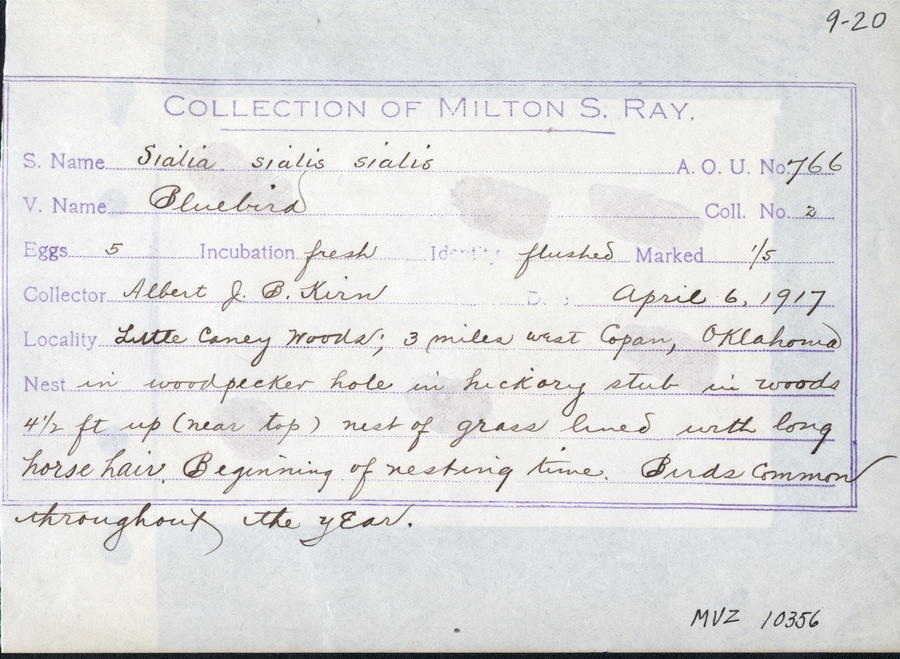 9-20
COLLECTION OF MILTON S. RAY.
S. Name Sialia sialis sialis A. O. U. No. 766
V. Name Bluebird Coll. No. 2
Eggs 5 Incubation fresh Identity flushed Marked 1/5
Collector Albert J. B. Kirn Date April 6, 1917
Locality Little Caney Woods; 3 miles west Copan, Oklahoma
Nest in woodpecker hole in hickory stub in woods
4 1/2 ft up (near top) nest of grass lined with long
horse hair. Beginning of nesting time. Birds common
throughout the year.
MVZ 10356